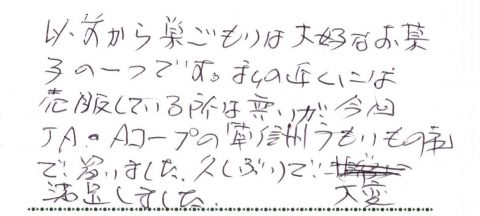 以前から巣ごもりは大好きなお菓
子の一つです。私の近くには
売販している所は無いが、今回
JA・Aコープの 信州うまいもの
で買いました、久しぶりで
満足しました。大変